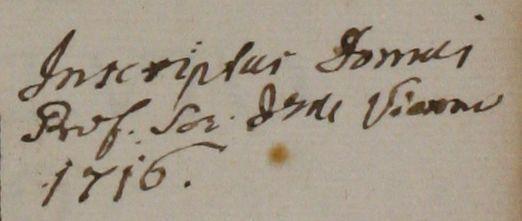 Inscriptus Domui
Prof. Soc. Jesu Viennæ
1716.